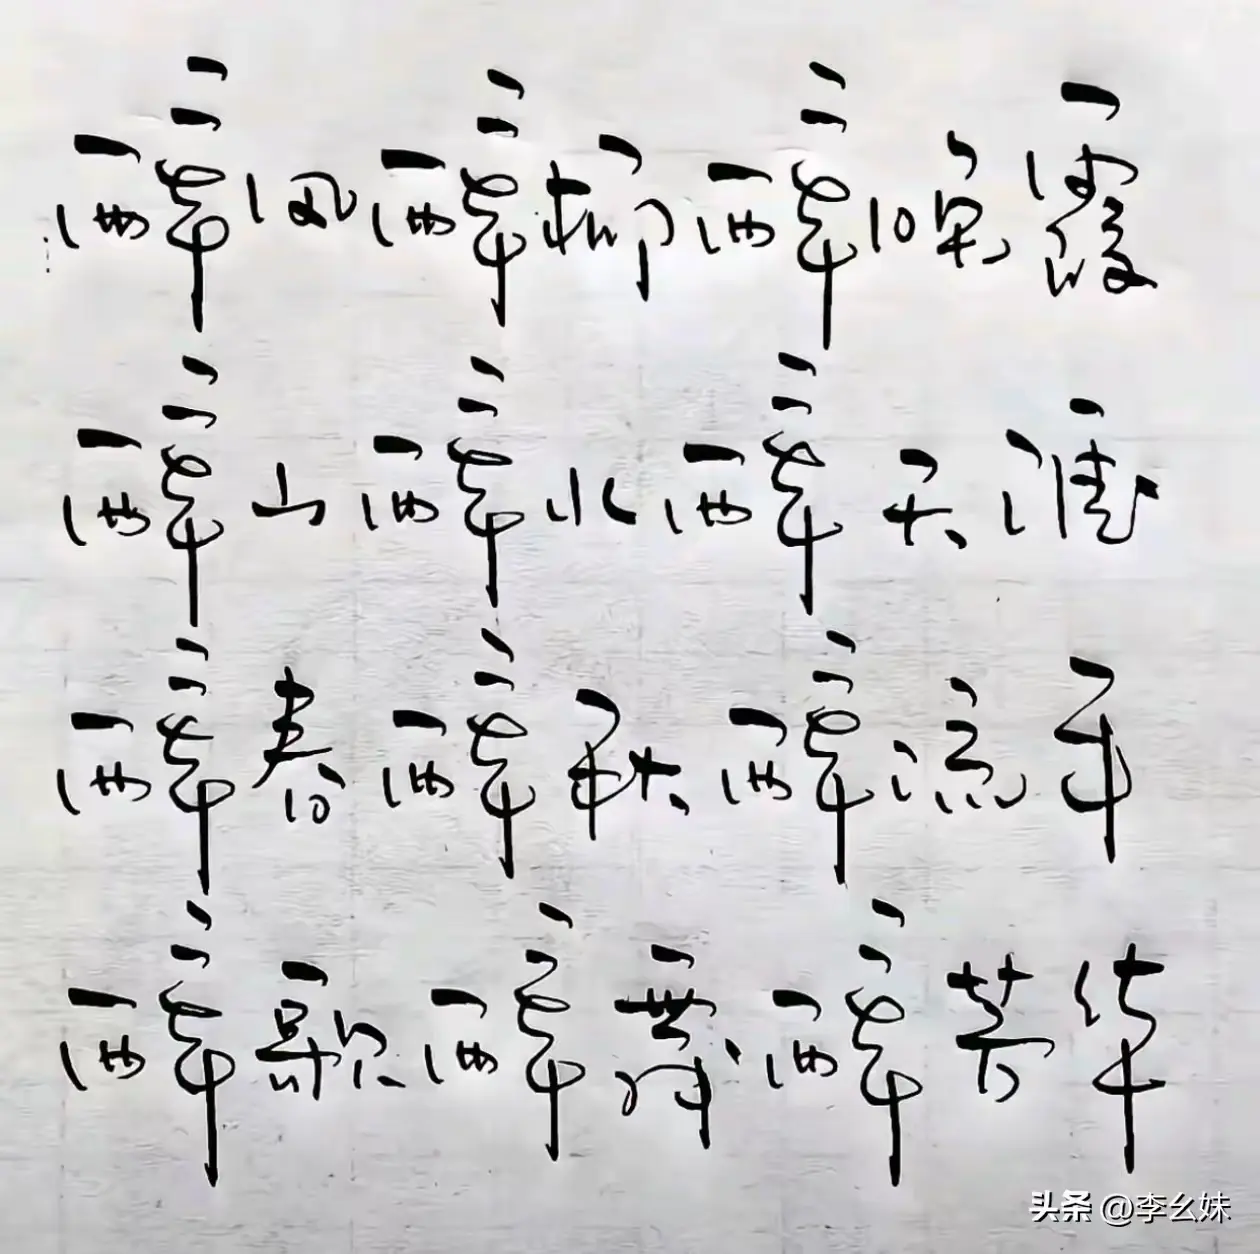 醉风醉柳醉晚霞
醉山醉水醉天涯
醉春醉秋醉流年
醉歌醉舞醉芳华
头条 @李幺妹